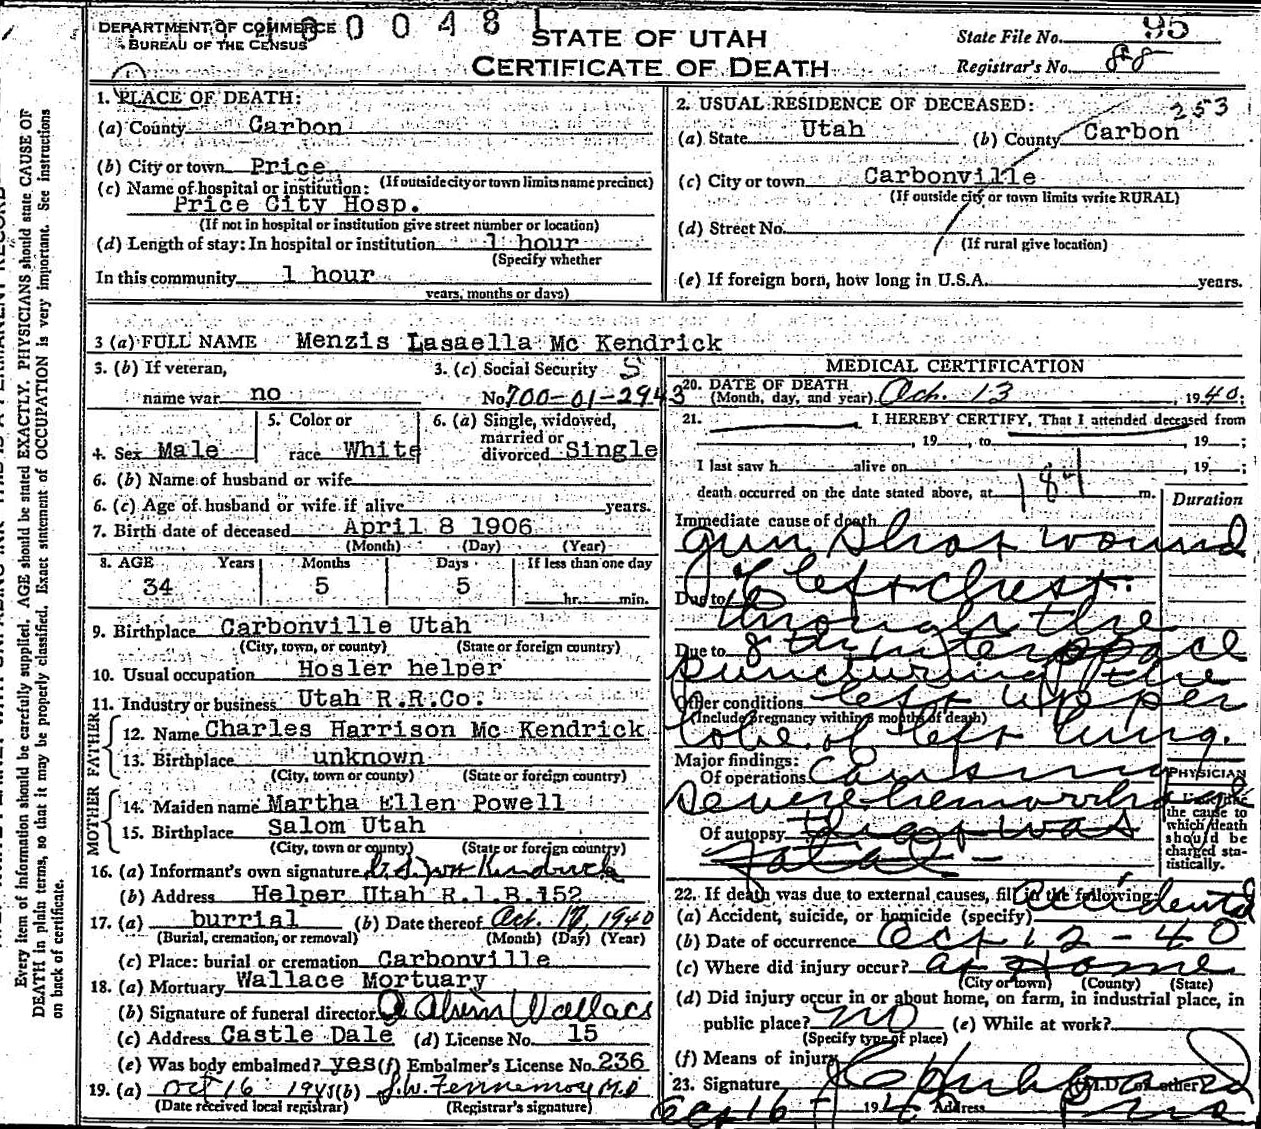 DEPARTMENT OF COMMERCE
BUREAU OF THE CENSUS
0 0 4 8 1
STATE OF UTAH
CERTIFICATE OF DEATH
State File No. 95
Registrar's No. 88
1. PLACE OF DEATH:
(a) County Carbon
(b) City or town Price
(If outside city or town limits name precinct)
(c) Name of hospital or institution:
Price City Hosp.
(If not in hospital or institution give street number or location)
(d) Length of stay: In hospital or institution 1 hour
(Specify whether
In this community 1 hour
years, months or days)
2. USUAL RESIDENCE OF DECEASED:
253
(a) State Utah (b) County Carbon
(c) City or town Carbonville
(If outside city or town limits write RURAL)
(d) Street No.
(If rural give location)
(e) If foreign born, how long in U.S.A. years.
3 (a) FULL NAME Menzis Lasaella Mc Kendrick
3. (b) If veteran,
name war no
3. (c) Social Security S
No. 700-01-2943
4. Sex Male
5. Color or
race White
6. (a) Single, widowed,
married or
divorced Single
6. (b) Name of husband or wife
6. (c) Age of husband or wife if alive years.
7. Birth date of deceased April 8 1906
(Month) (Day) (Year)
8. AGE Years Months Days If less than one day
34 5 5 hr. min.
9. Birthplace Carbonville Utah
(City, town, or county) (State or foreign country)
10. Usual occupation Hosler helper
11. Industry or business Utah R.R.Co.
FATHER
12. Name Charles Harrison Mc Kendrick
13. Birthplace unknown
(City, town or county) (State or foreign country)
MOTHER
14. Maiden name Martha Ellen Powell
15. Birthplace Salom Utah
(City, town or county) (State or foreign country)
16. (a) Informant's own signature Mc Kendrick
(b) Address Helper Utah R.1.B.152
17. (a) burrial (b) Date thereof Oct. 17, 1940
(Burial, cremation, or removal) (Month) (Day) (Year)
(c) Place: burial or cremation Carbonville
18. (a) Mortuary Wallace Mortuary
(b) Signature of funeral director Wallace
(c) Address Castle Dale (d) License No. 15
(e) Was body embalmed? yes (f) Embalmer's License No. 236
19. (a) Oct 16 (b) J.W. Fennemoy M.D
(Date received local registrar) (Registrar's signature)
MEDICAL CERTIFICATION
20. DATE OF DEATH
(Month, day, and year) Oct. 13, 1940;
21. I HEREBY CERTIFY, That I attended deceased from
, 19 , to , 19 ;
I last saw h alive on , 19 ;
death occurred on the date stated above, at m.
Duration
Immediate cause of death
gun shot wound
of left chest.
Due to
through the
Due to 8th interspace
puncturing the
Other conditions left upper
(Include pregnancy within 3 months of death)
lobe of left lung.
Major findings:
Of operations causing
severe hemorrhage
Of autopsy that was
fatal -
PHYSICIAN
Underline
the cause to
which death
should be
charged sta-
tistically.
22. If death was due to external causes, fill in the following:
(a) Accident, suicide, or homicide (specify) Accidental
(b) Date of occurrence Oct 12 - 40
(c) Where did injury occur? at Home
(City or town) (County) (State)
(d) Did injury occur in or about home, on farm, in industrial place, in
public place? no (e) While at work?
(Specify type of place)
(f) Means of injury
23. Signature (M.D. or other)
Oct 16 194 Address
Every item of information should be carefully supplied. AGE should be stated EXACTLY. PHYSICIANS should state CAUSE OF
DEATH in plain terms, so that it may be properly classified. Exact statement of OCCUPATION is very important. See instructions
on back of certificate.